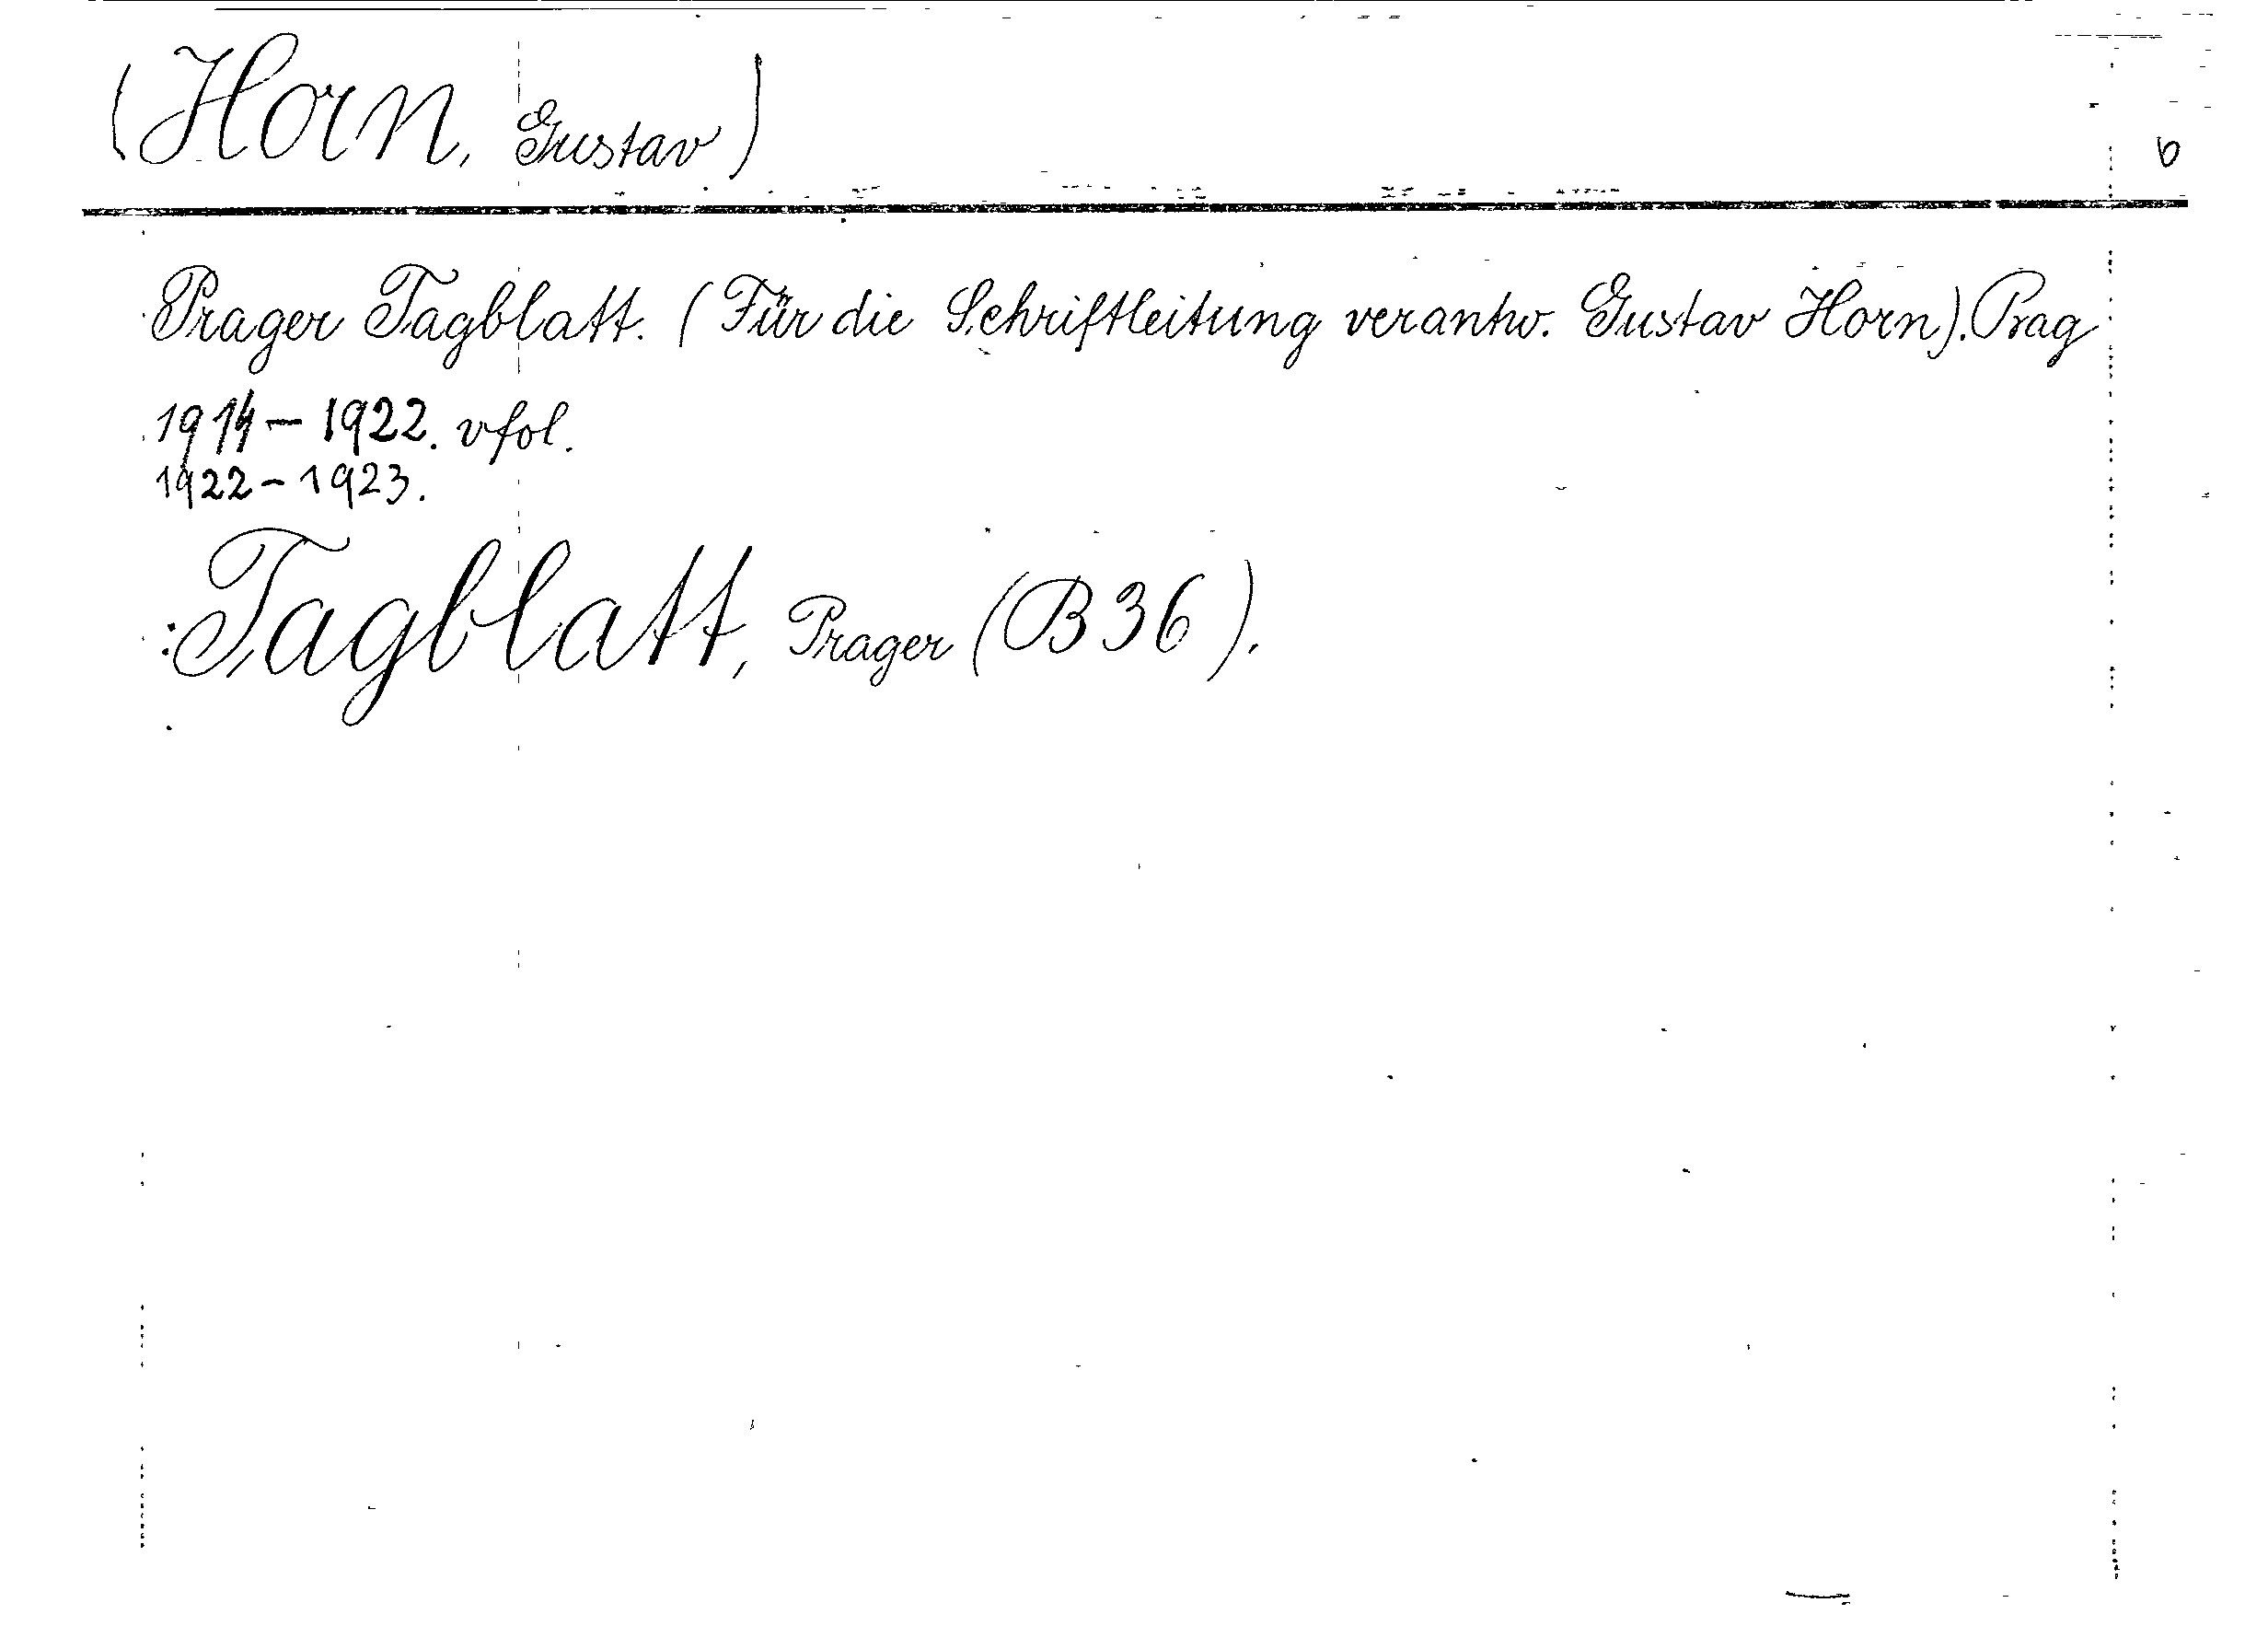 (Horn, Gustav) b
Prager Tagblatt. (Für die Schriftleitung verantw. Gustav Horn). Prag
1914 – 1922. vfol.
1922 – 1923.
: Tagblatt, Prager (B 36).